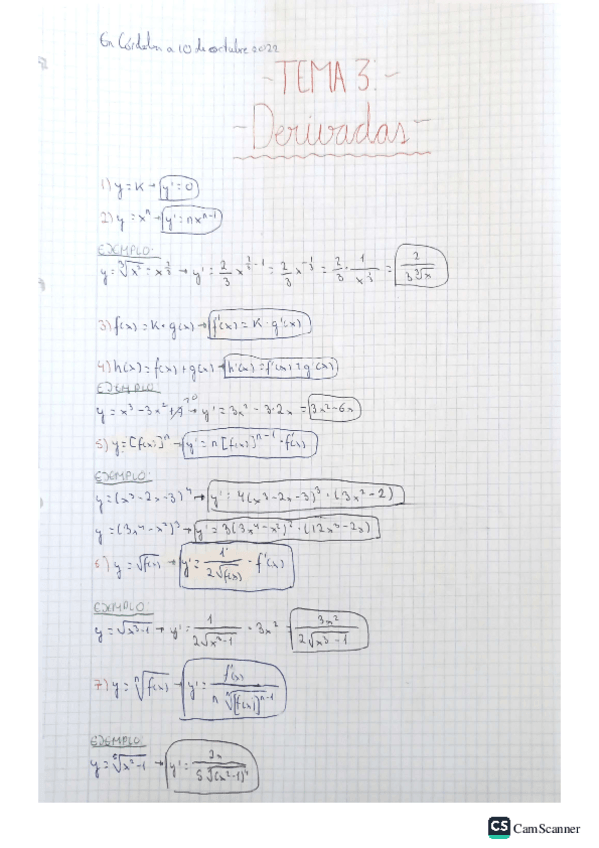 En Córdoba a 10 de octubre 2022
-TEMA 3:-
-Derivadas-
1) y = K → y' = 0
2) y = xⁿ → y' = nxⁿ⁻¹
EJEMPLO:
y = ∛x² = x^(2/3) → y' = 2/3 x^(2/3 - 1) = 2/3 x^(-1/3) = 2/3 · 1/x^(1/3) = 2/(3∛x)
3) f(x) = K · g(x) → f'(x) = K · g'(x)
4) h(x) = f(x) + g(x) → h'(x) = f'(x) + g'(x)
EJEMPLO
y = x³ - 3x² + → y' = 3x² - 3·2x = 3x² - 6x
5) y = [f(x)]ⁿ → y' = n[f(x)]ⁿ⁻¹ · f'(x)
EJEMPLO:
y = (x³ - 2x - 3)⁴ → y' = 4(x³ - 2x - 3)³ · (3x² - 2)
y = (3x⁴ - x²)³ → y' = 3(3x⁴ - x²)² · (12x³ - 2x)
6) y = √f(x) → y' = 1/(2√f(x)) · f'(x)
EJEMPLO
y = √(x³-1) → y' = 1/(2√(x³-1)) · 3x² = 3x²/(2√(x³-1))
7) y = ⁿ√f(x) → y' = f'(x)/(n ⁿ√[f(x)]ⁿ⁻¹)
EJEMPLO
y = ⁵√(x²-1) → y' = 2x/(5 ⁵√(x²-1)⁴)
CS CamScanner